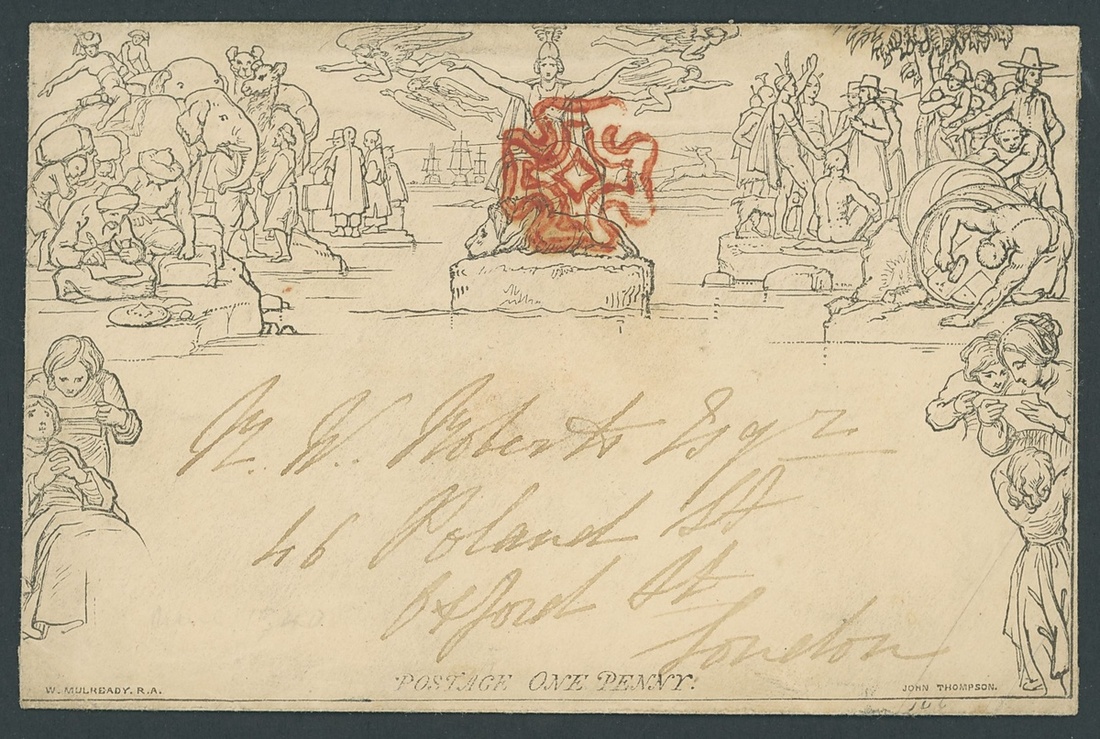 N. W. Roberts Esqr
46 Poland St
Oxford St
London
POSTAGE ONE PENNY.
W. MULREADY, R.A.
JOHN THOMPSON.